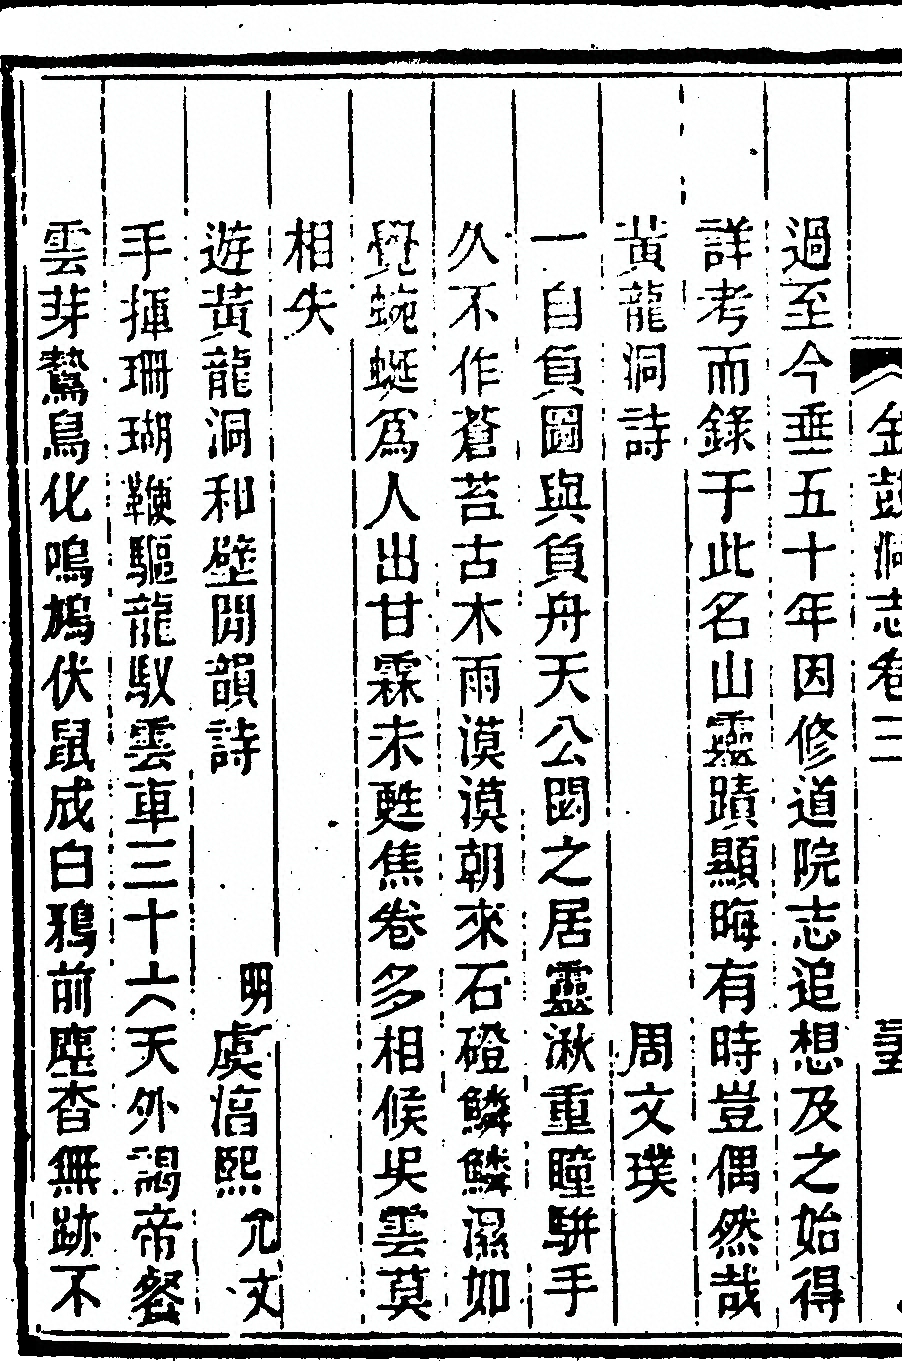 金鼓洞志卷三
過至今垂五十年因修道院志追想及之始得
詳考而錄于此名山靈蹟顯晦有時豈偶然哉
黃龍洞詩 周文璞
一自負圖與負舟天公閟之居靈湫重瞳駢手
久不作蒼苔古木雨漠漠朝來石磴鱗鱗濕如
覺蜿蜒爲人出甘霖未甦焦卷多相候雲莫
相失
遊黃龍洞和壁閒韻詩 明虞湻熙文
手揮珊瑚鞭驅龍馭雲車三十六天外謁帝餐
雲芽鷙鳥化鳴鳩伏鼠成白鴉前塵杳無跡不